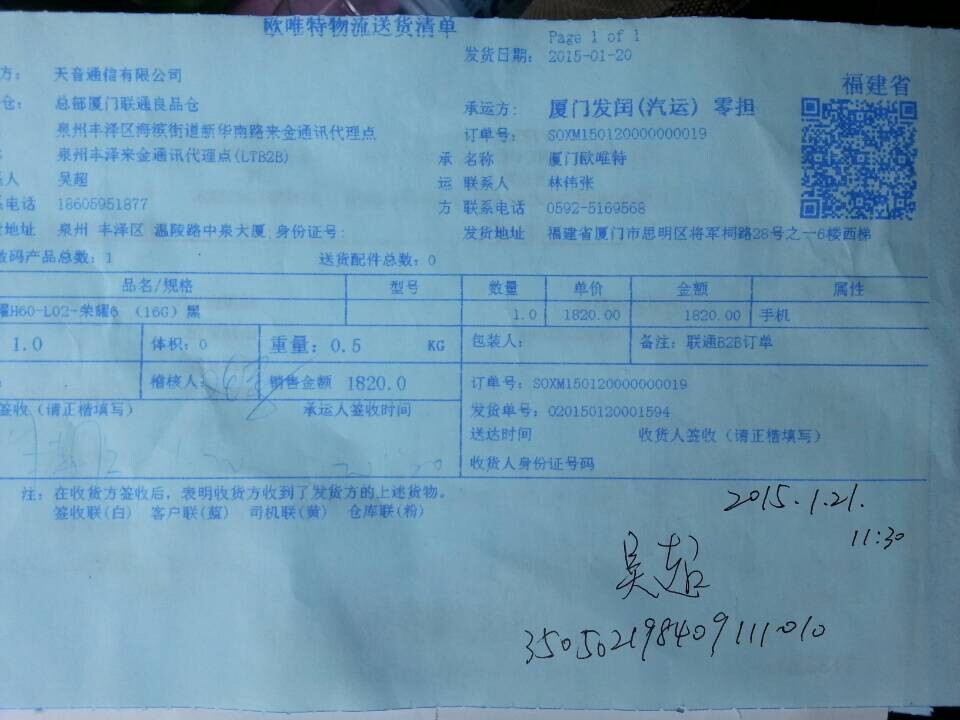 欧唯特物流送货清单
Page 1 of 1
发货日期: 2015-01-20
方: 天音通信有限公司
福建省
仓: 总部厦门联通良品仓
承运方: 厦门发闰(汽运) 零担
泉州丰泽区海滨街道新华南路来金通讯代理点
订单号: SOXM150120000000019
泉州丰泽来金通讯代理点(LTB2B)
承 名称 厦门欧唯特
系人 吴超
运 联系人 林伟张
系电话 18605951877
方 联系电话 0592-5169568
货地址 泉州 丰泽区 温陵路中泉大厦 身份证号:
发货地址 福建省厦门市思明区将军祠路28号之一6楼西梯
数码产品总数: 1 送货配件总数: 0
品名/规格 型号 数量 单价 金额 属性
耀H60-L02-荣耀6 (16G) 黑 1.0 1820.00 1820.00 手机
1.0 体积: 0 重量: 0.5 KG 包装人: 备注: 联通B2B订单
稽核人: 销售金额 1820.0
订单号: SOXM150120000000019
签收(请正楷填写) 承运人签收时间
发货单号: 020150120001594
送达时间 收货人签收(请正楷填写)
收货人身份证号码
注: 在收货方签收后, 表明收货方收到了发货方的上述货物。
签收联(白) 客户联(蓝) 司机联(黄) 仓库联(粉)
2015.1.21.
11:30
吴超
350502198409111010